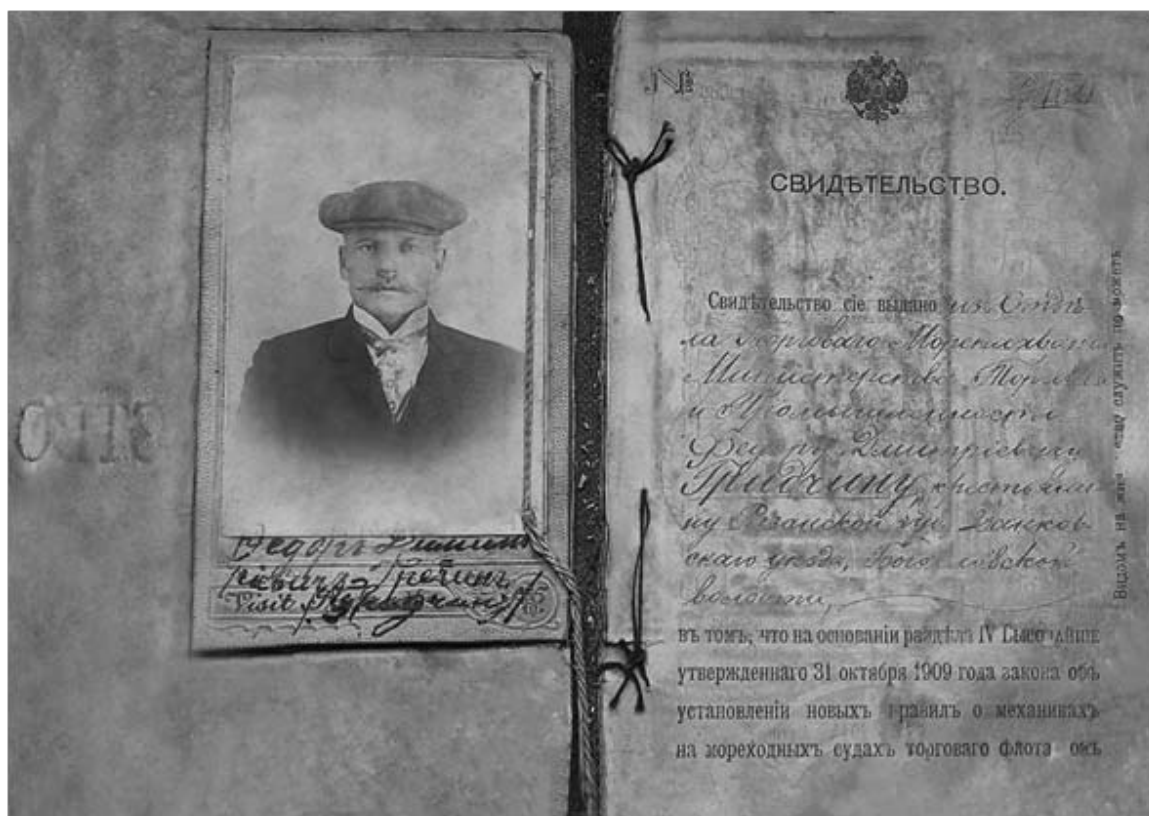 СТВО
Федоръ Дмит
Visit
№
СВИДѢТЕЛЬСТВО.
Свидѣтельство сіе выдано изъ Отдѣ
ла Торговаго Мореплаванія
Министерства Торговли
и Промышленности
Федору Дмитріевичу
Гридчину, крестьяни
ну Рязанской губ. Данков
скаго уѣзда,
волости,
въ томъ, что на основаніи раздѣла IV Высочайше
утвержденнаго 31 октября 1909 года закона объ
установленіи новыхъ правилъ о механикахъ
на мореходныхъ судахъ торговаго флота онъ
Видомъ на служить не можетъ